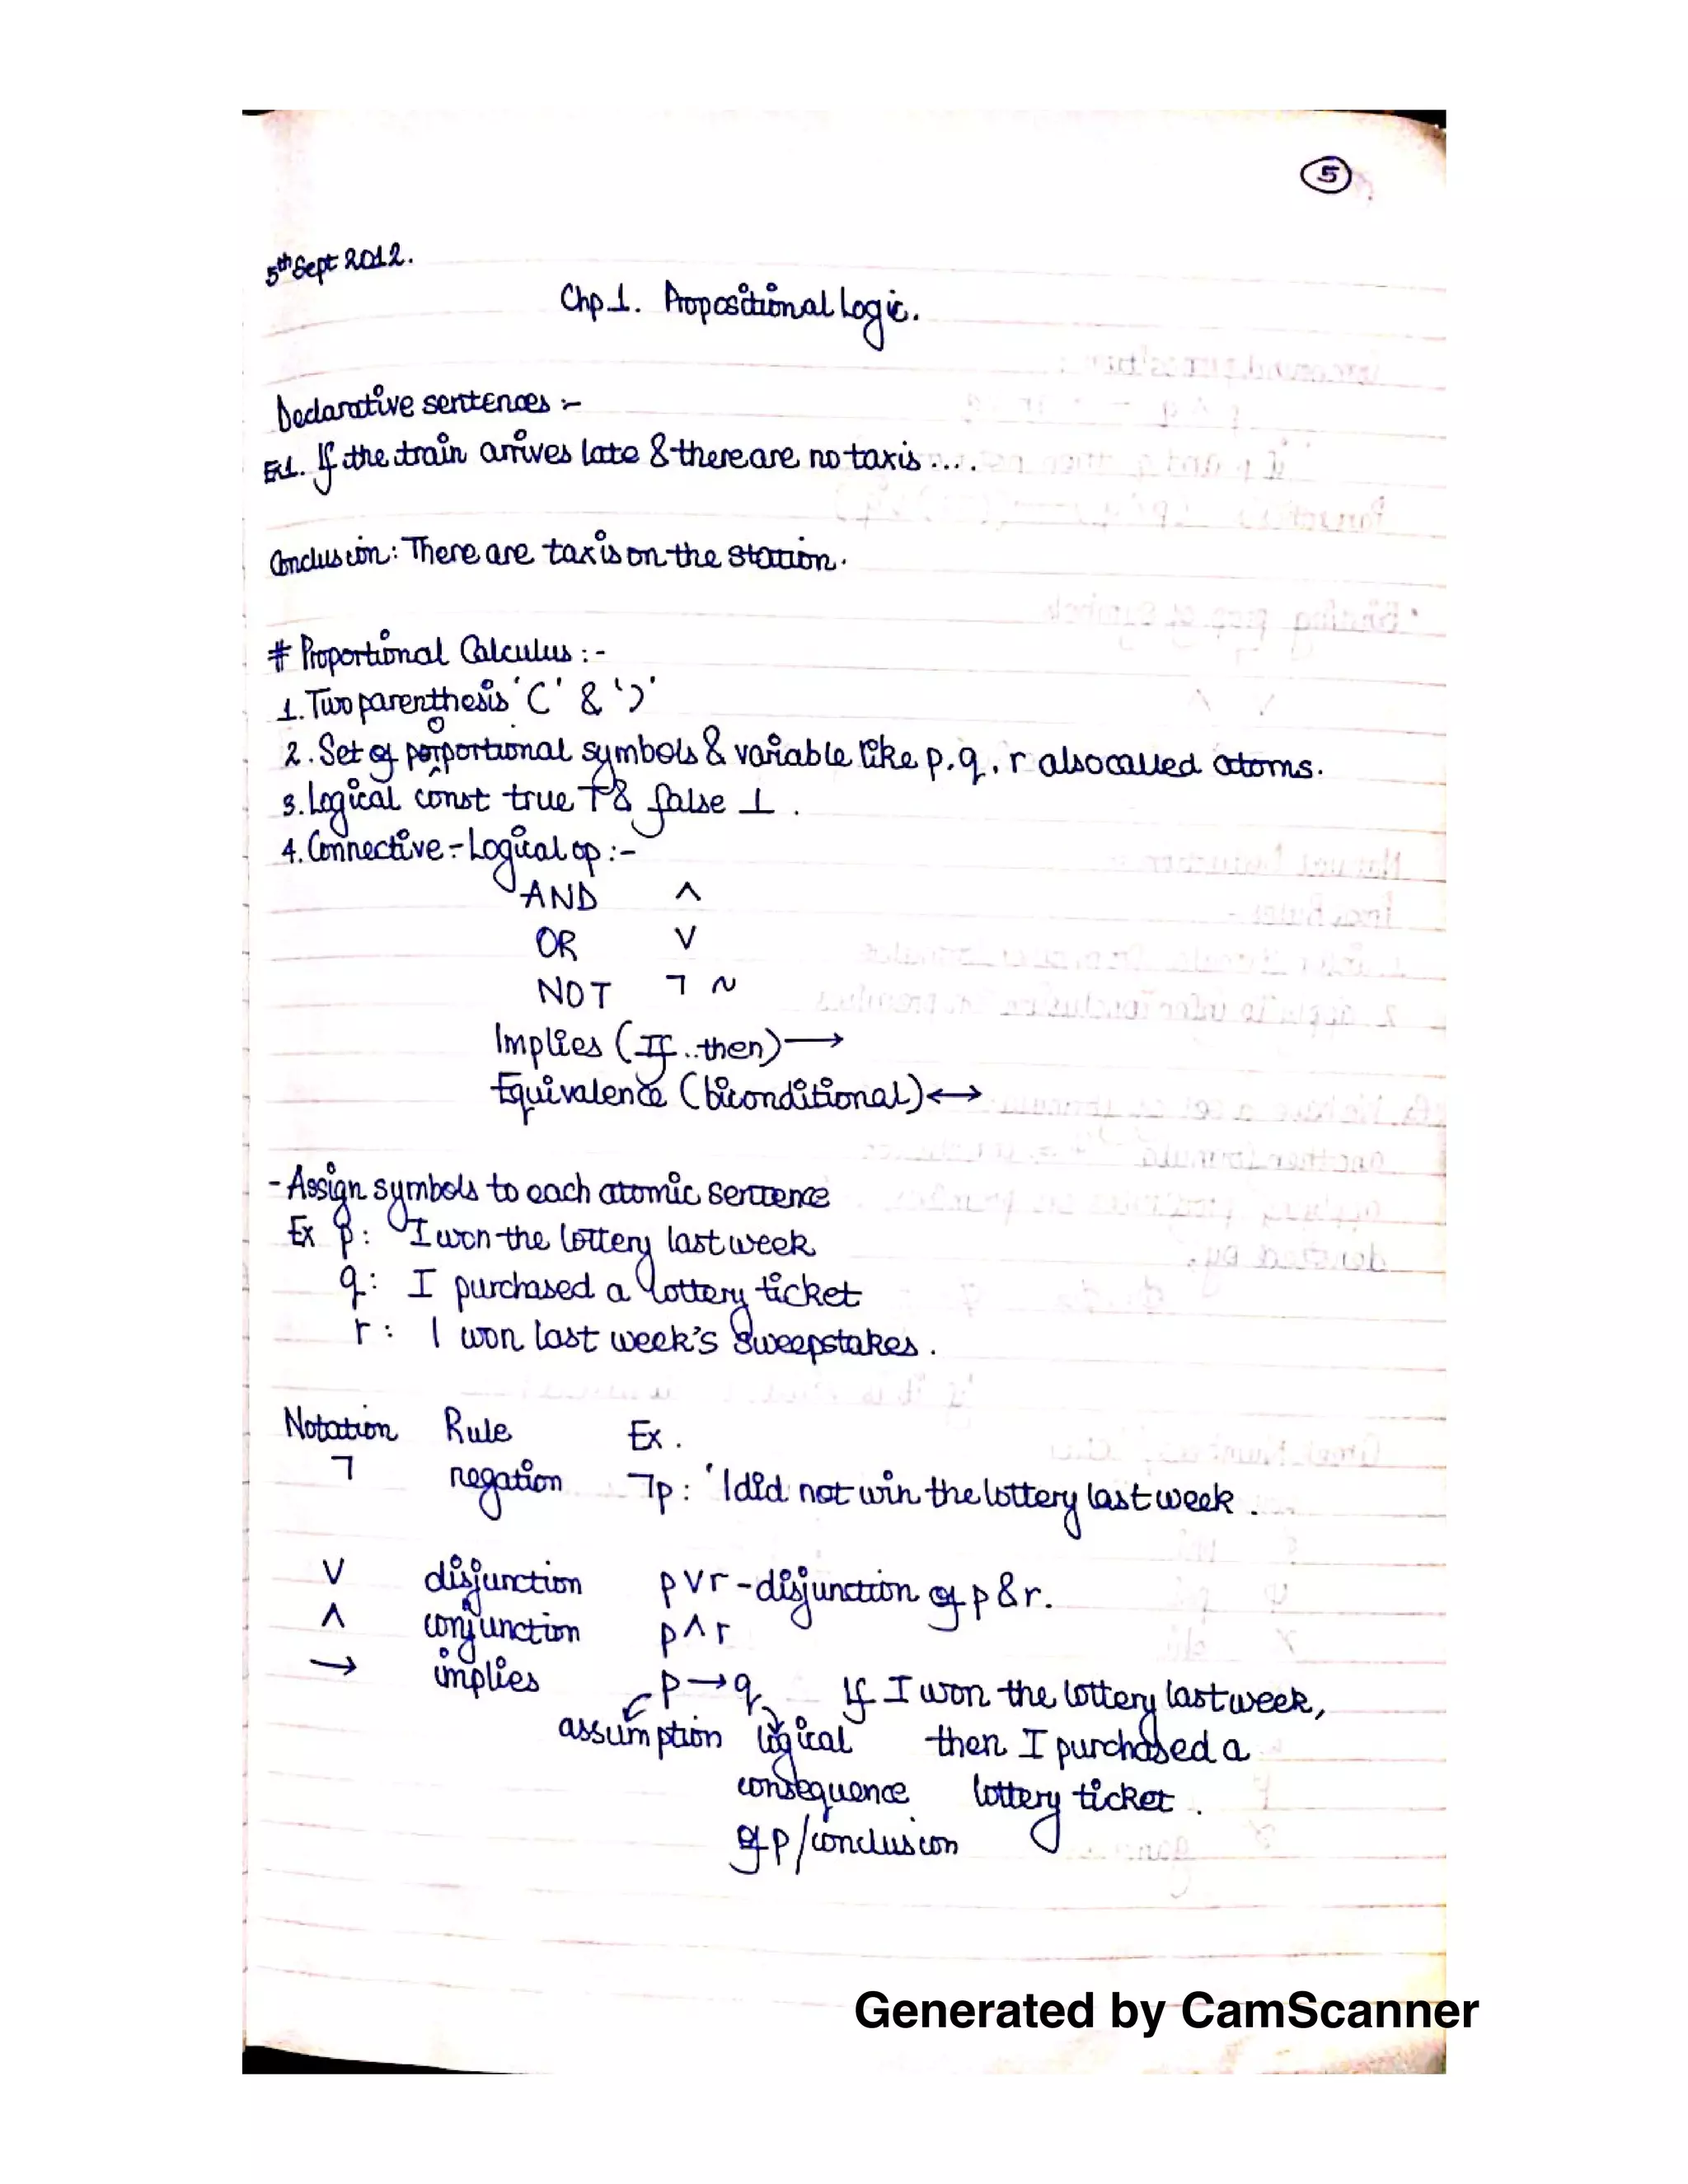 5
5th Sept 2012.
Chp 1. Propositional Logic.
Declarative sentences :-
Ex1. If the train arrives late & there are no taxis ....
Conclusion: There are taxis on the station.
# Proportional Calculus :-
1. Two parenthesis '(' & ')'
2. Set of porportional symbols & variable like p, q, r also called atoms.
3. Logical const true T & false ⊥ .
4. Connective - Logical op :-
AND ∧
OR ∨
NOT ¬ ~
Implies (If..then) →
Equivalence (biconditional) ↔
- Assign symbols to each atomic sentence
Ex p : I won the lottery last week
q : I purchased a lottery ticket
r : I won last week's sweepstakes .
Notation Rule Ex .
¬ negation ¬p : 'I did not win the lottery last week .
∨ disjunction p∨r - disjunction of p & r.
∧ conjunction p∧r
→ implies p → q If I won the lottery last week,
assumption logical then I purchased a
consequence lottery ticket .
of p / conclusion
Generated by CamScanner